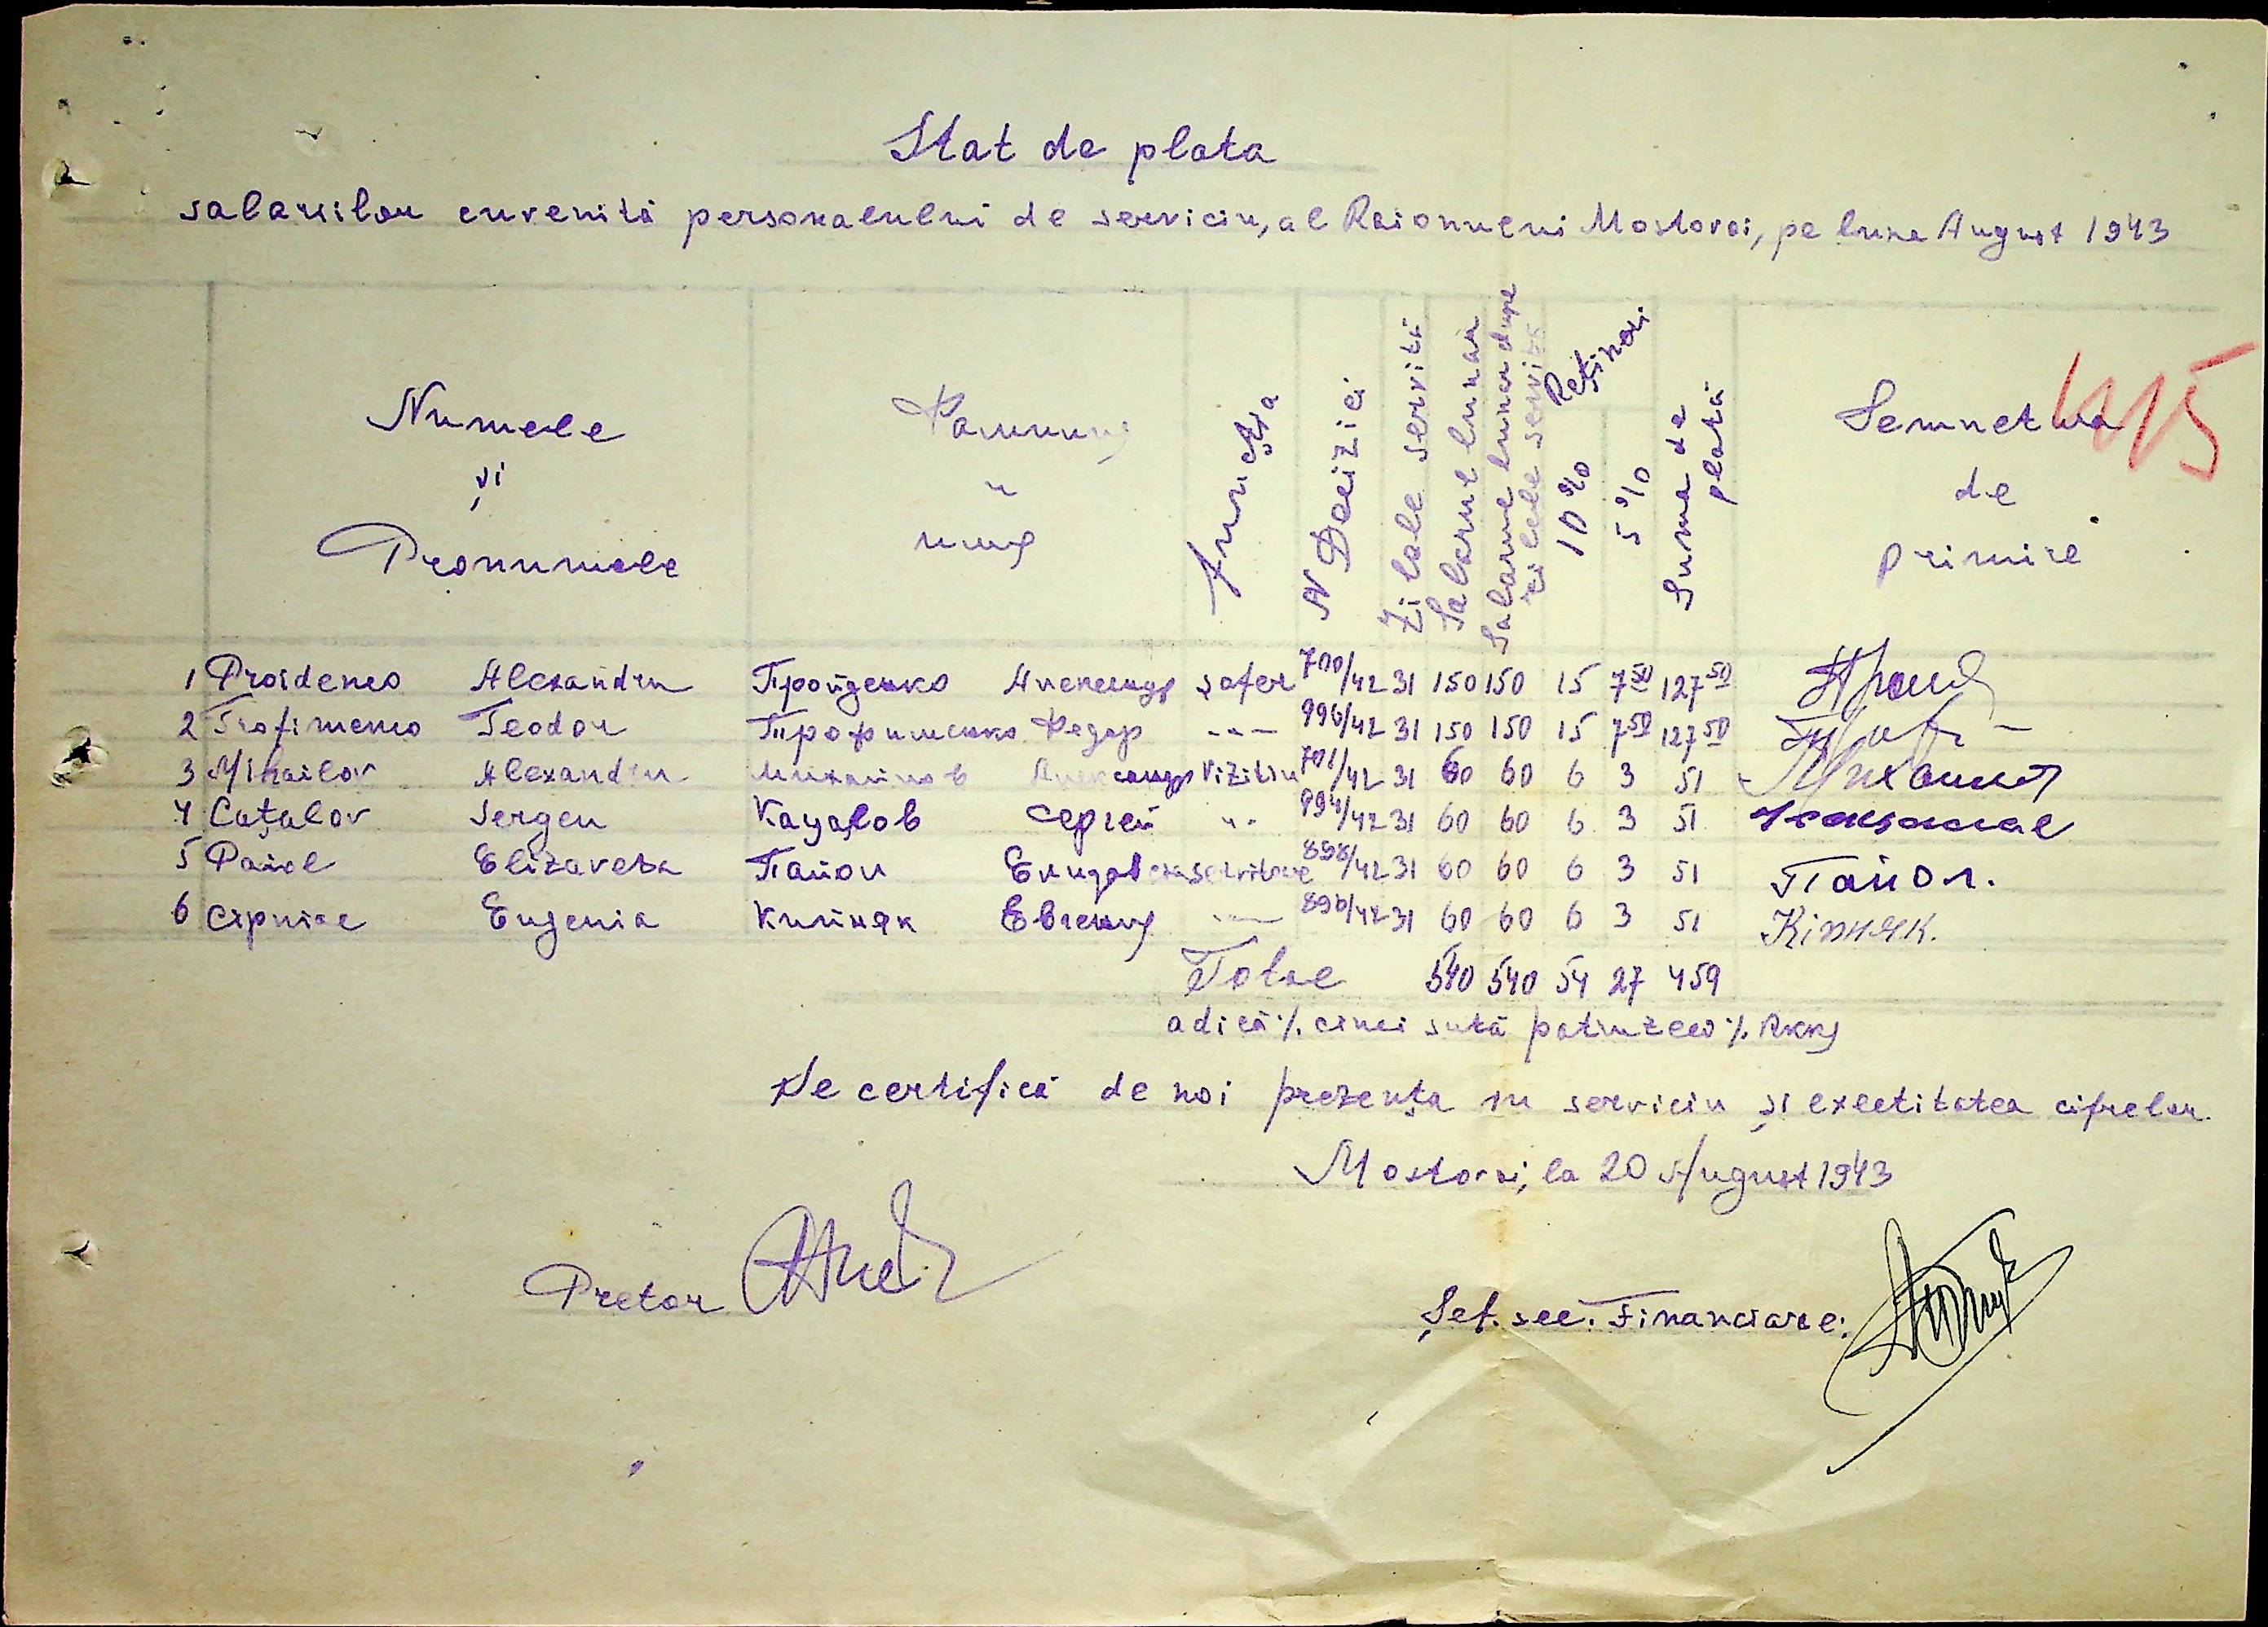 Stat de plata
salariilor cuvenită personalului de serviciu, al Raionului Mostovoi, pe luna August 1943
Numele
și
Pronumele
Фамилия
и
имя
Funcția
N Deciziei
Zilele servită
Salarul lunar
Salarul lunar dupe
zilele servită
Rețineri
10%
5%
Suma de
plată
Semnetura
de
primire
115
1 Proidenco Alexandru Пройденко Александр șofer 700/42 31 150 150 15 7 50 127 50
2 Trofimenco Teodor Трофименко Федор -"- 996/42 31 150 150 15 7 50 127 50
3 Mihailov Alexandru Михайлов Александр Vizitiu 701/42 31 60 60 6 3 51
4 Cațalov Sergeu Кацалов Сергей "- 994/42 31 60 60 6 3 51
5 Paiol Elizaveta Пайол Елизавета servitoare 898/42 31 60 60 6 3 51 Пайол.
6 Cipniac Eugenia Кипняк Евгения -"- 896/42 31 60 60 6 3 51 Кіпняк.
Total 540 540 54 27 459
adică %. cinci sută patruzeci %. RKKS
Se certifică de noi prezența în serviciu și exectitatea cifrelor.
Mostovoi, la 20 August 1943
Pretor
Șef. sec. Financiare: